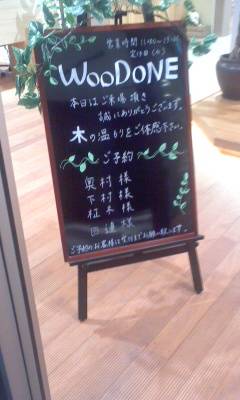 営業時間 10:00~17:00
定休日(水)
WOODONE
本日はご来場頂き
誠にありがとうございます。
木の温もりをご体感下さい。
ご予約
奥村様
下村様
柾木様
田邉様
ご予約のお客様は受付までお願い致します。